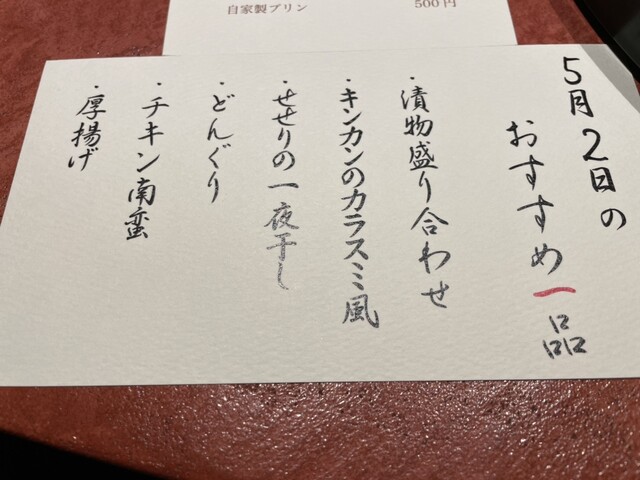 自家製プリン 500円
5月2日の
おすすめ一品
・漬物盛り合わせ
・キンカンのカラスミ風
・せせりの一夜干し
・どんぐり
・チキン南蛮
・厚揚げ